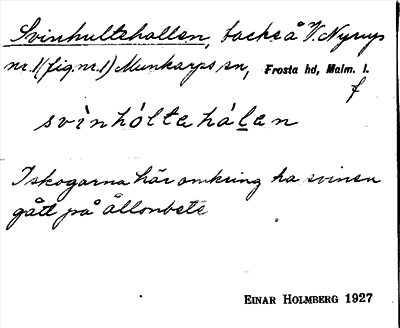 Svinhultshallen, backe å V. Nyrup
nr. 1 (fig. nr. 1) Munkarps sn, Frosta hd, Malm. l.
f
svìnhóltehálen
I skogarna här omkring ha svinen
gått på ållonbete
EINAR HOLMBERG 1927